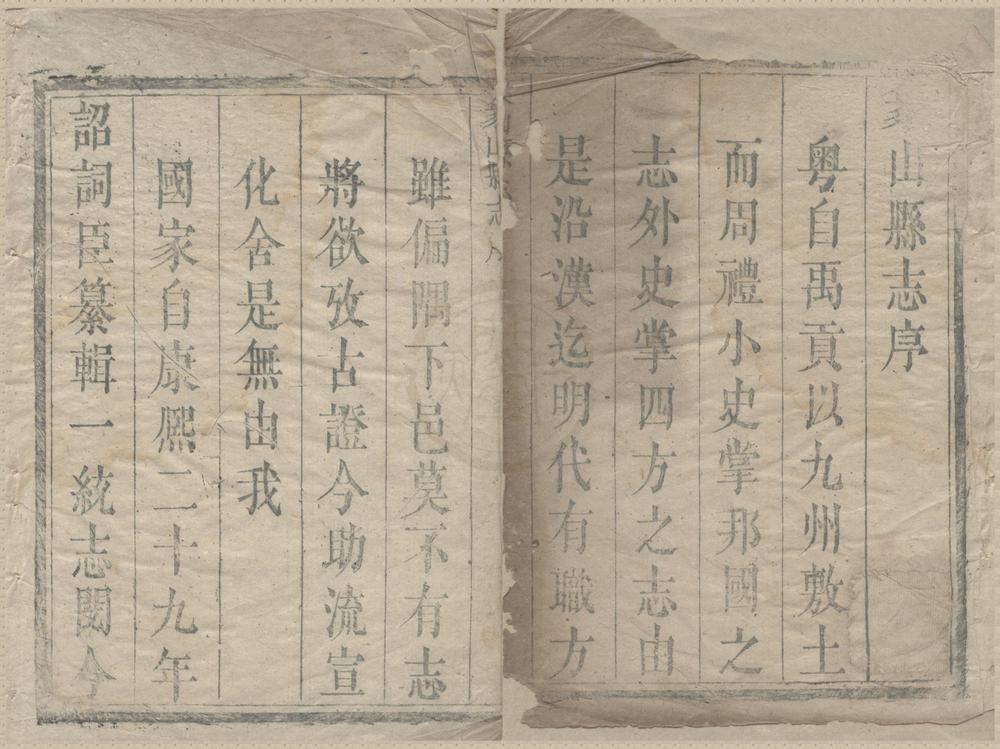 山縣志序
粵自禹貢以九州敷土
而周禮小史掌邦國之
志外史掌四方之志由
是沿漢迄明代有職方
山縣志
雖偏隅下邑莫不有志
將欲攷古證今助流宣
化舍是無由我
國家自康熈二十九年
詔詞臣纂輯一統志閱今